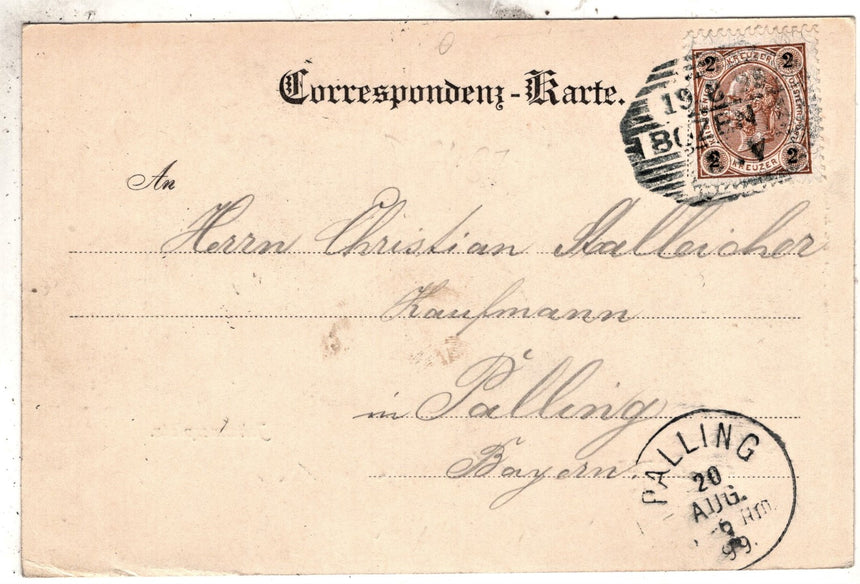 Correspondenz-Karte.
2 KREUZER 2
19
BOZEN
A
2 KREUZER 2
An
Herrn Christian Stalleicher
Kaufmann
in Palling
Bayern.
PALLING
20
AUG.
Nm.
99.